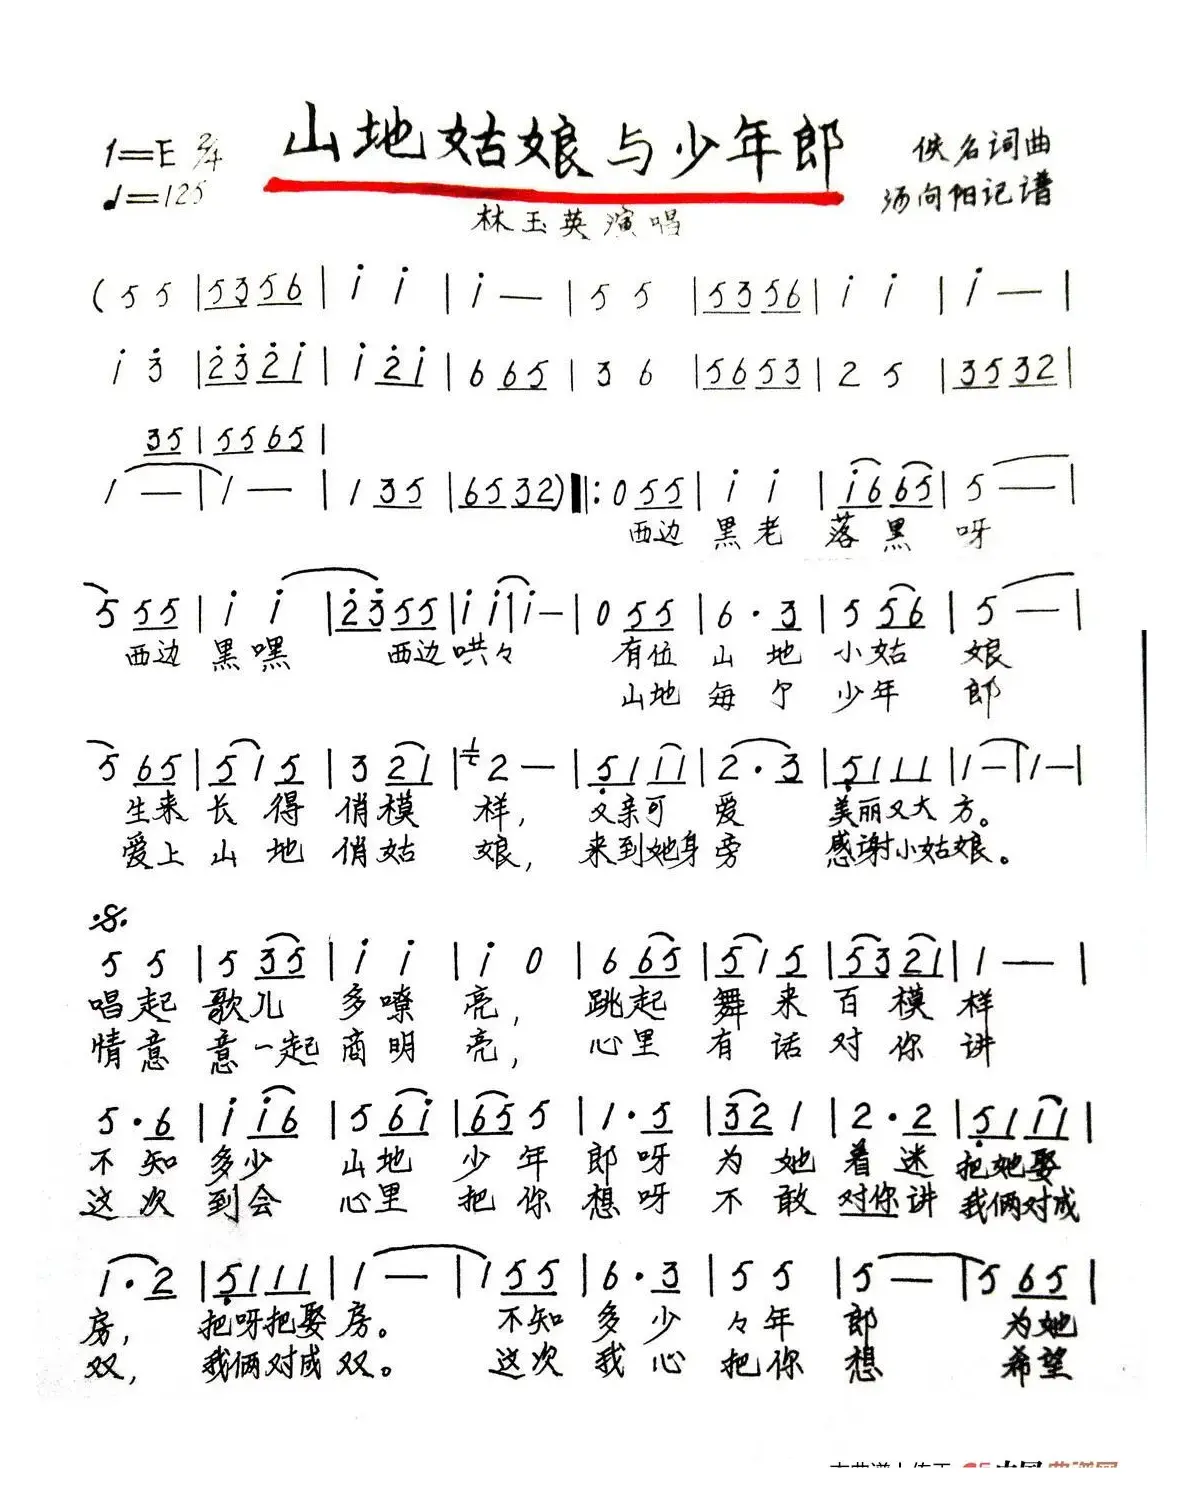 山地姑娘与少年郎
1=E 2/4
佚名词曲
♩=125
汤向阳记谱
林玉英演唱
(5 5 | 5356 | i i | i — | 5 5 | 5356 | i i | i — |
i 3 | 2321 | i 2i | 6 65 | 3 6 | 5653 | 2 5 | 3532 |
35 | 55 65 |
1 — | 1 — | 1 35 | 6532) ‖: 0 55 | i i | i665 | 5 — |
西边 黑老 落黑 呀
5 55 | i i | 2355 | i i | i — | 0 55 | 6 · 3 | 5 56 | 5 — |
西边 黑嘿 西边哄々 有位 山地 小姑 娘
山地 每个 少年 郎
5 65 | 5 1 5 | 3 21 | 2 — | 5111 | 2 · 3 | 5111 | 1 — | 1 — |
生来 长得 俏模 样, 又亲可 爱 美丽又大方。
爱上 山地 俏姑 娘, 来到她身旁 感谢小姑娘。
5 5 | 5 35 | i i | i 0 | 6 65 | 5 1 5 | 5321 | 1 — |
唱起 歌儿 多嘹 亮, 跳起 舞来 百模 样
情意 意一起 商明 亮, 心里 有话 对你 讲
5 · 6 | i i6 | 5 6i | 65 5 | 1 · 5 | 32 1 | 2 · 2 | 5111 |
不知 多少 山地 少年 郎呀 为她 着迷 把她娶
这次 到会 心里 把你 想呀 不敢 对你讲 我俩对成
1 · 2 | 5111 | 1 — | 1 55 | 6 · 3 | 5 5 | 5 — | 5 65 |
房, 把呀把娶房。 不知 多少 々年 郎 为她
双, 我俩对成双。 这次 我心 把你 想 希望